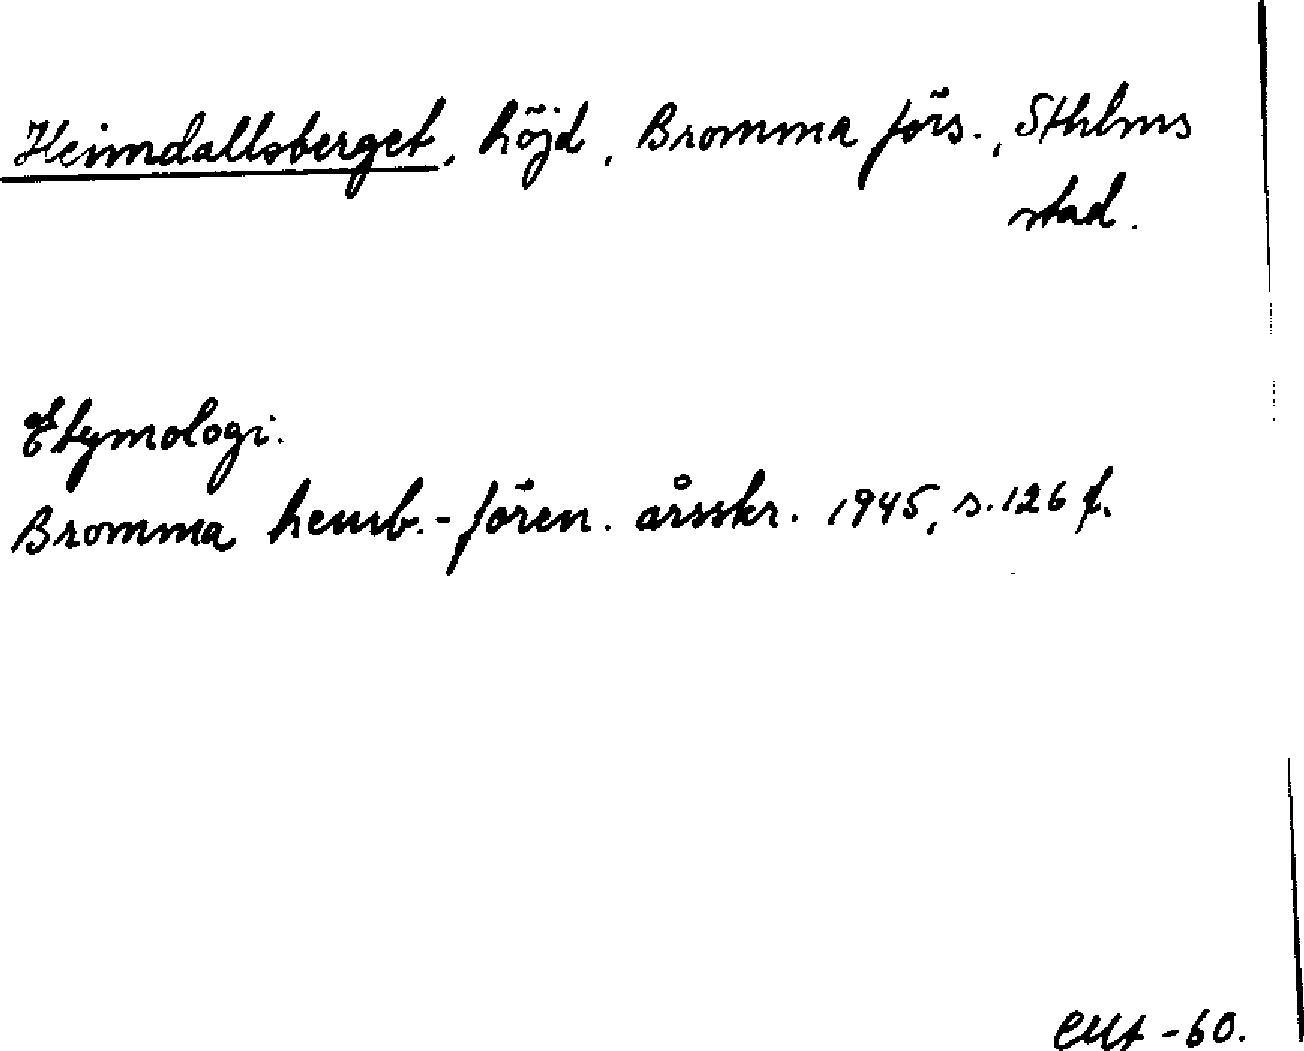 Heimdallsberget, höjd, Bromma förs., Sthlms
stad.
Etymologi.
Bromma hemb.-fören. årsskr. 1945, s. 126 f.
-60.